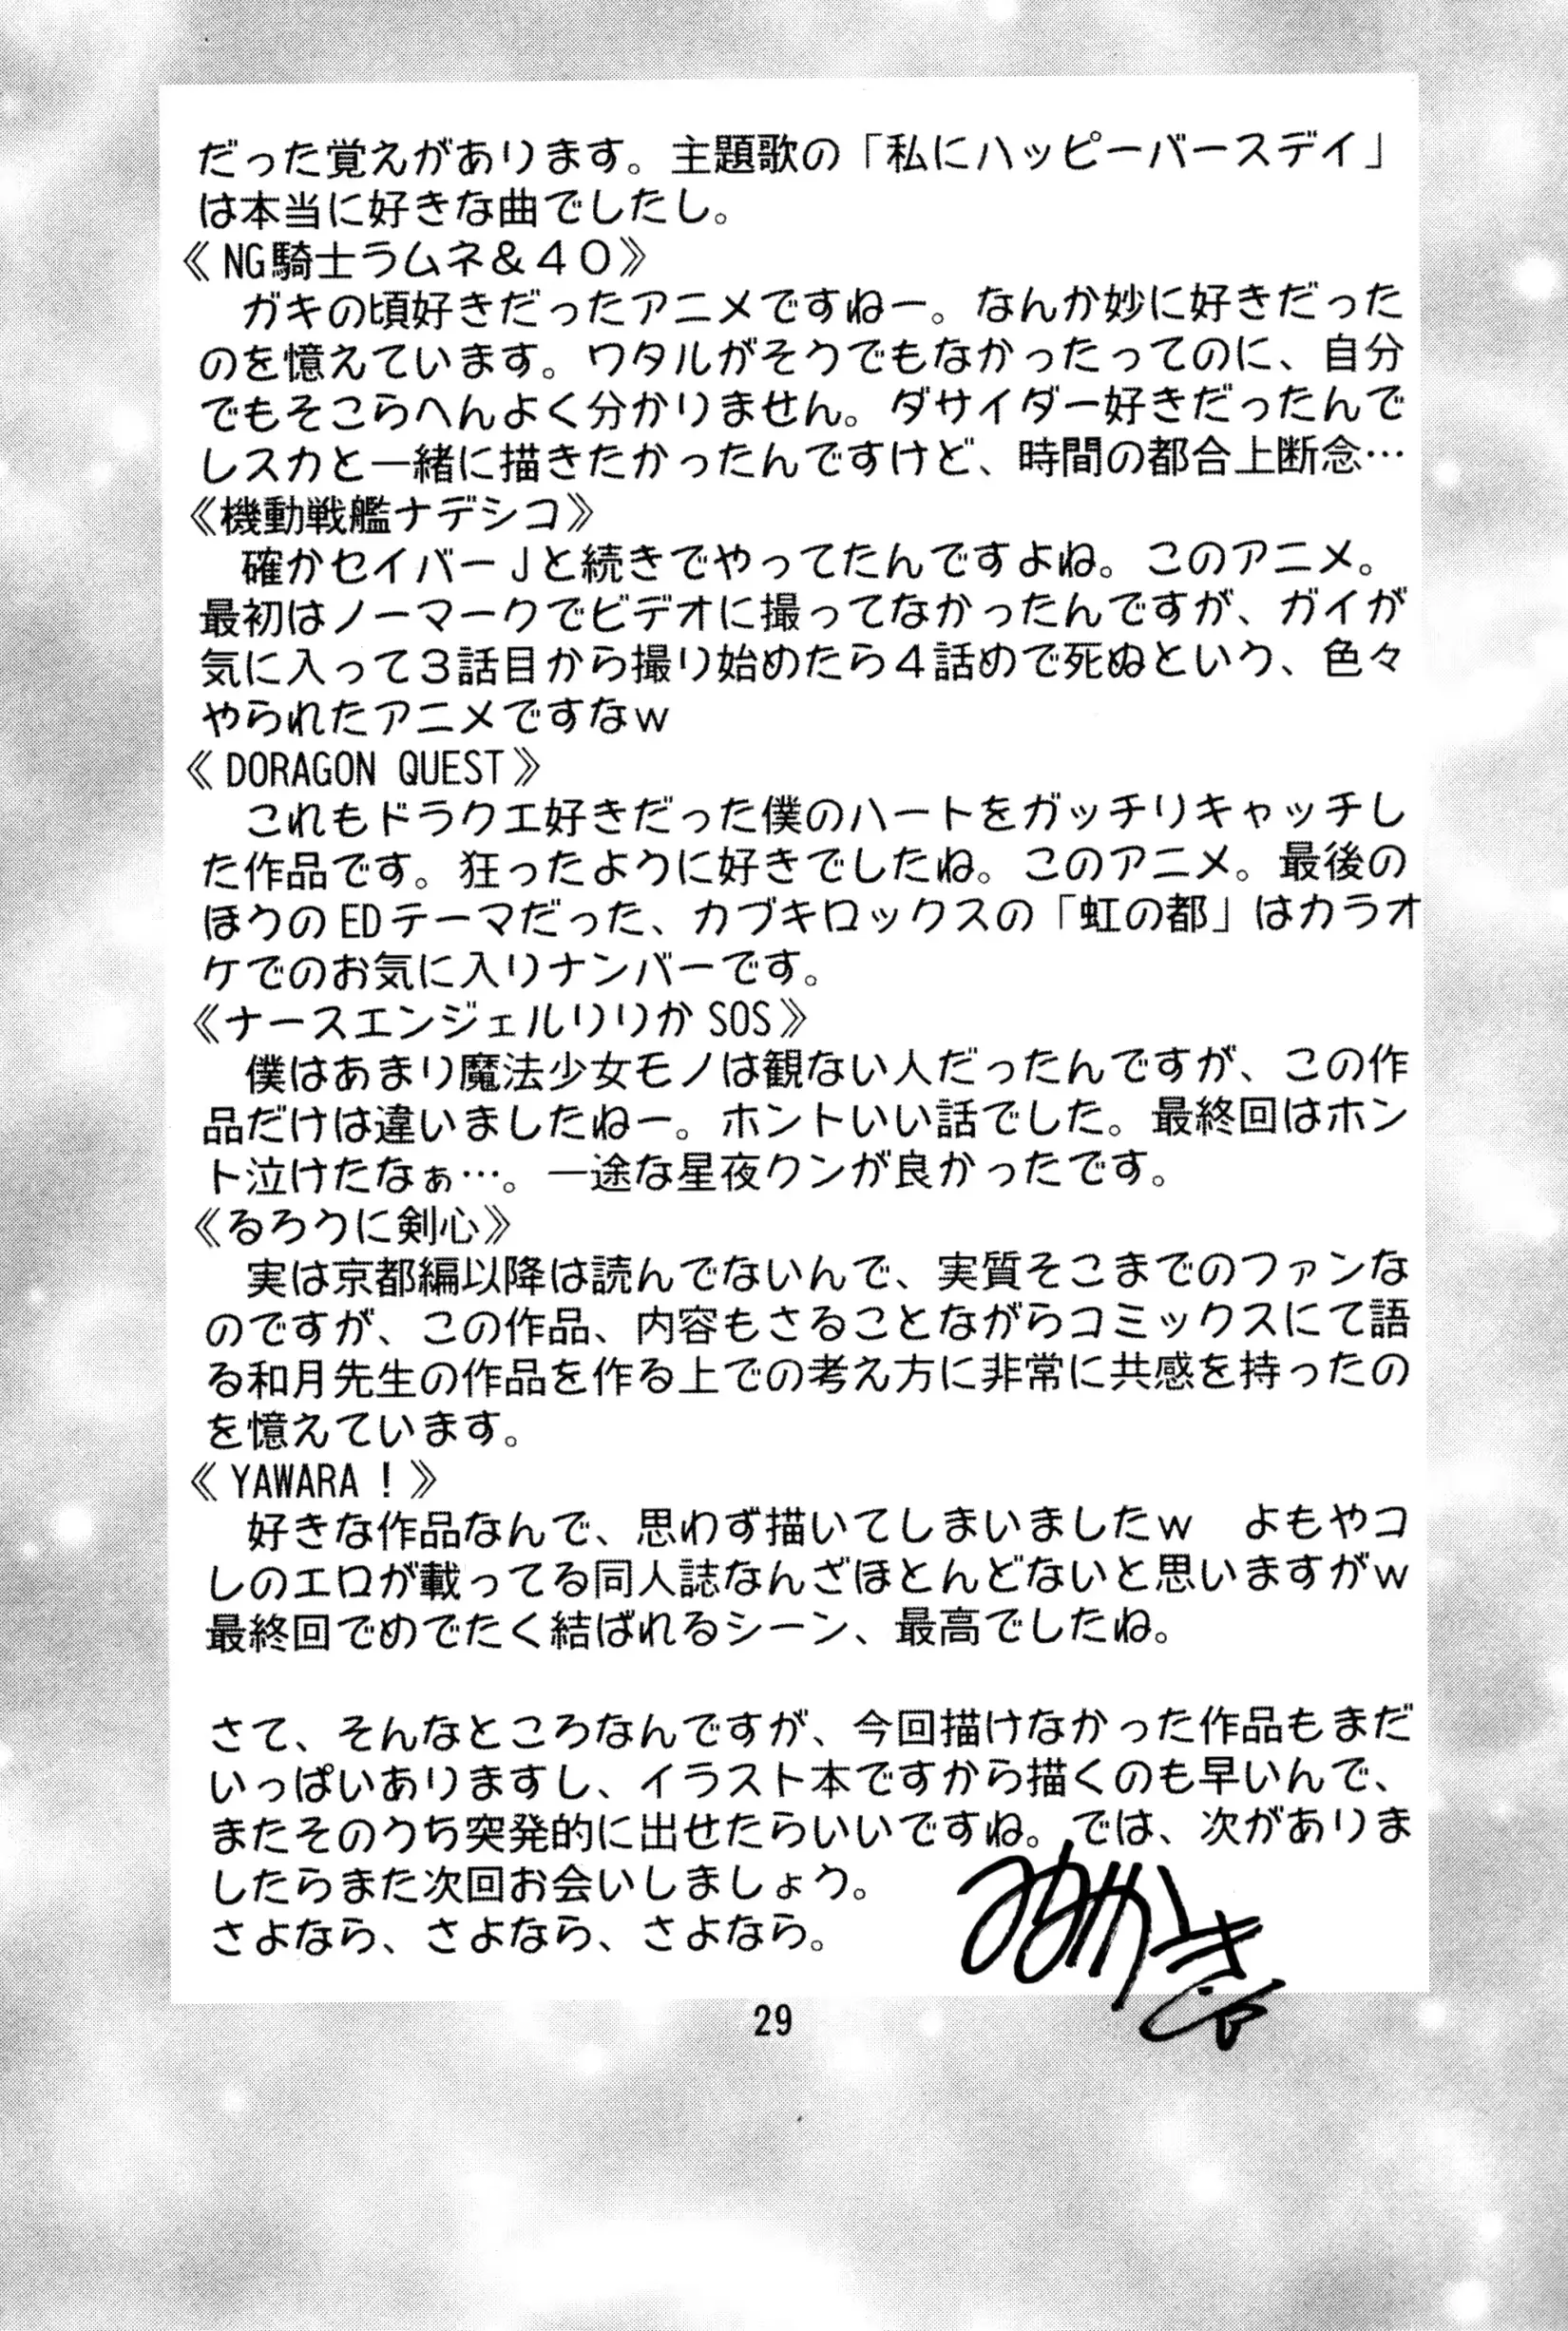 だった覚えがあります。主題歌の「私にハッピーバースデイ」
は本当に好きな曲でしたし。
《NG騎士ラムネ＆４０》
　ガキの頃好きだったアニメですねー。なんか妙に好きだった
のを憶えています。ワタルがそうでもなかったってのに、自分
でもそこらへんよく分かりません。ダサイダー好きだったんで
レスカと一緒に描きたかったんですけど、時間の都合上断念…
《機動戦艦ナデシコ》
　確かセイバーJと続きでやってたんですよね。このアニメ。
最初はノーマークでビデオに撮ってなかったんですが、ガイが
気に入って３話目から撮り始めたら４話めで死ぬという、色々
やられたアニメですなｗ
《DORAGON QUEST》
　これもドラクエ好きだった僕のハートをガッチリキャッチし
た作品です。狂ったように好きでしたね。このアニメ。最後の
ほうのEDテーマだった、カブキロックスの「虹の都」はカラオ
ケでのお気に入りナンバーです。
《ナースエンジェルりりかSOS》
　僕はあまり魔法少女モノは観ない人だったんですが、この作
品だけは違いましたねー。ホントいい話でした。最終回はホン
ト泣けたなぁ…。一途な星夜クンが良かったです。
《るろうに剣心》
　実は京都編以降は読んでないんで、実質そこまでのファンな
のですが、この作品、内容もさることながらコミックスにて語
る和月先生の作品を作る上での考え方に非常に共感を持ったの
を憶えています。
《YAWARA！》
　好きな作品なんで、思わず描いてしまいましたｗ　よもやコ
レのエロが載ってる同人誌なんざほとんどないと思いますがｗ
最終回でめでたく結ばれるシーン、最高でしたね。
さて、そんなところなんですが、今回描けなかった作品もまだ
いっぱいありますし、イラスト本ですから描くのも早いんで、
またそのうち突発的に出せたらいいですね。では、次がありま
したらまた次回お会いしましょう。
さよなら、さよなら、さよなら。
29